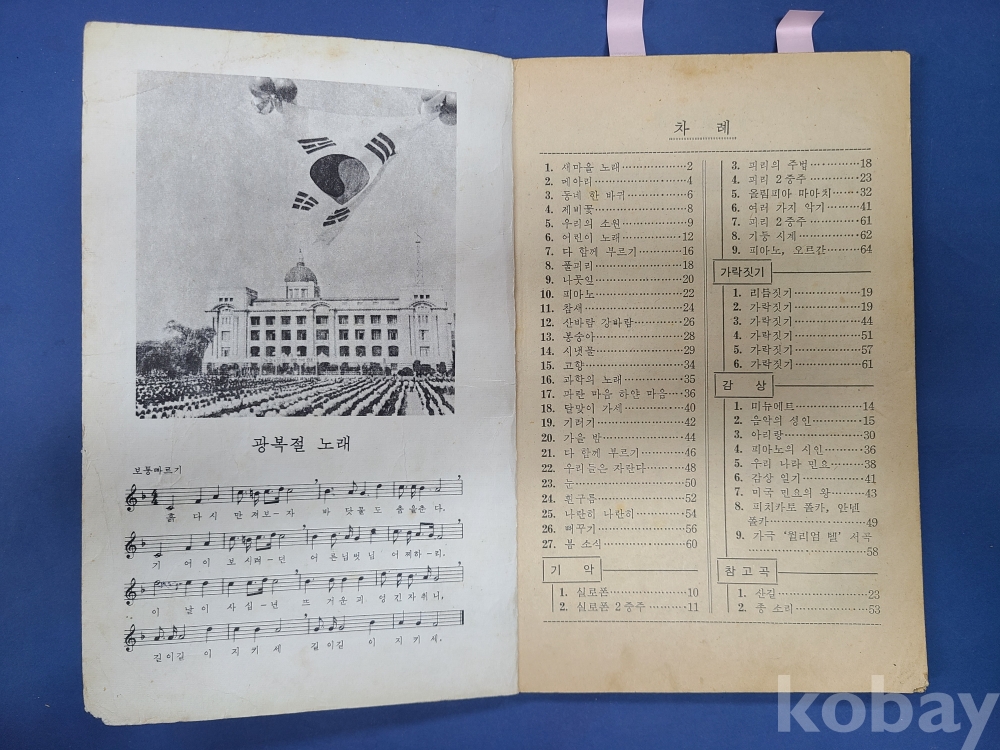 광복절 노래
보통빠르기
흙 다 시 만 져보–자 바 닷물도 춤을춘 다,
기 어이 보시려–던 어 른님벗님 어찌하–리,
이 날이 사십–년 뜨 거운피 엉긴자취니,
길이길 이 지키세 길이길 이 지키세.
차 례
1. 새마을 노래……………2
2. 메아리……………4
3. 동네 한 바퀴……………6
4. 제비꽃……………8
5. 우리의 소원……………9
6. 어린이 노래……………12
7. 다 함께 부르기……………16
8. 풀피리……………18
9. 나뭇잎……………20
10. 피아노……………22
11. 참새……………24
12. 산바람 강바람……………26
13. 봉숭아……………28
14. 시냇물……………29
15. 고향……………34
16. 과학의 노래……………35
17. 파란 마음 하얀 마음…36
18. 달맞이 가세……………40
19. 기러기……………42
20. 가을 밤……………44
21. 다 함께 부르기……………46
22. 우리들은 자란다……………48
23. 눈……………50
24. 흰구름……………52
25. 나란히 나란히……………54
26. 뻐꾸기……………56
27. 봄 소식……………60
기 악
1. 실로폰……………10
2. 실로폰 2중주……………11
3. 피리의 주법……………18
4. 피리 2중주……………23
5. 올림피아 마아치……………32
6. 여러 가지 악기……………41
7. 피리 2중주……………61
8. 기둥 시계……………62
9. 피아노, 오르간……………64
가락짓기
1. 리듬짓기……………19
2. 가락짓기……………19
3. 가락짓기……………44
4. 가락짓기……………51
5. 가락짓기……………57
6. 가락짓기……………61
감 상
1. 미뉴에트……………14
2. 음악의 성인……………15
3. 아리랑……………30
4. 피아노의 시인……………36
5. 우리 나라 민요……………38
6. 감상 일기……………41
7. 미국 민요의 왕……………43
8. 피치카토 폴카, 안넨
폴카……………49
9. 가극 '윌리엄 텔' 서곡
……………58
참고곡
1. 산길……………23
2. 종 소리……………53
kobay